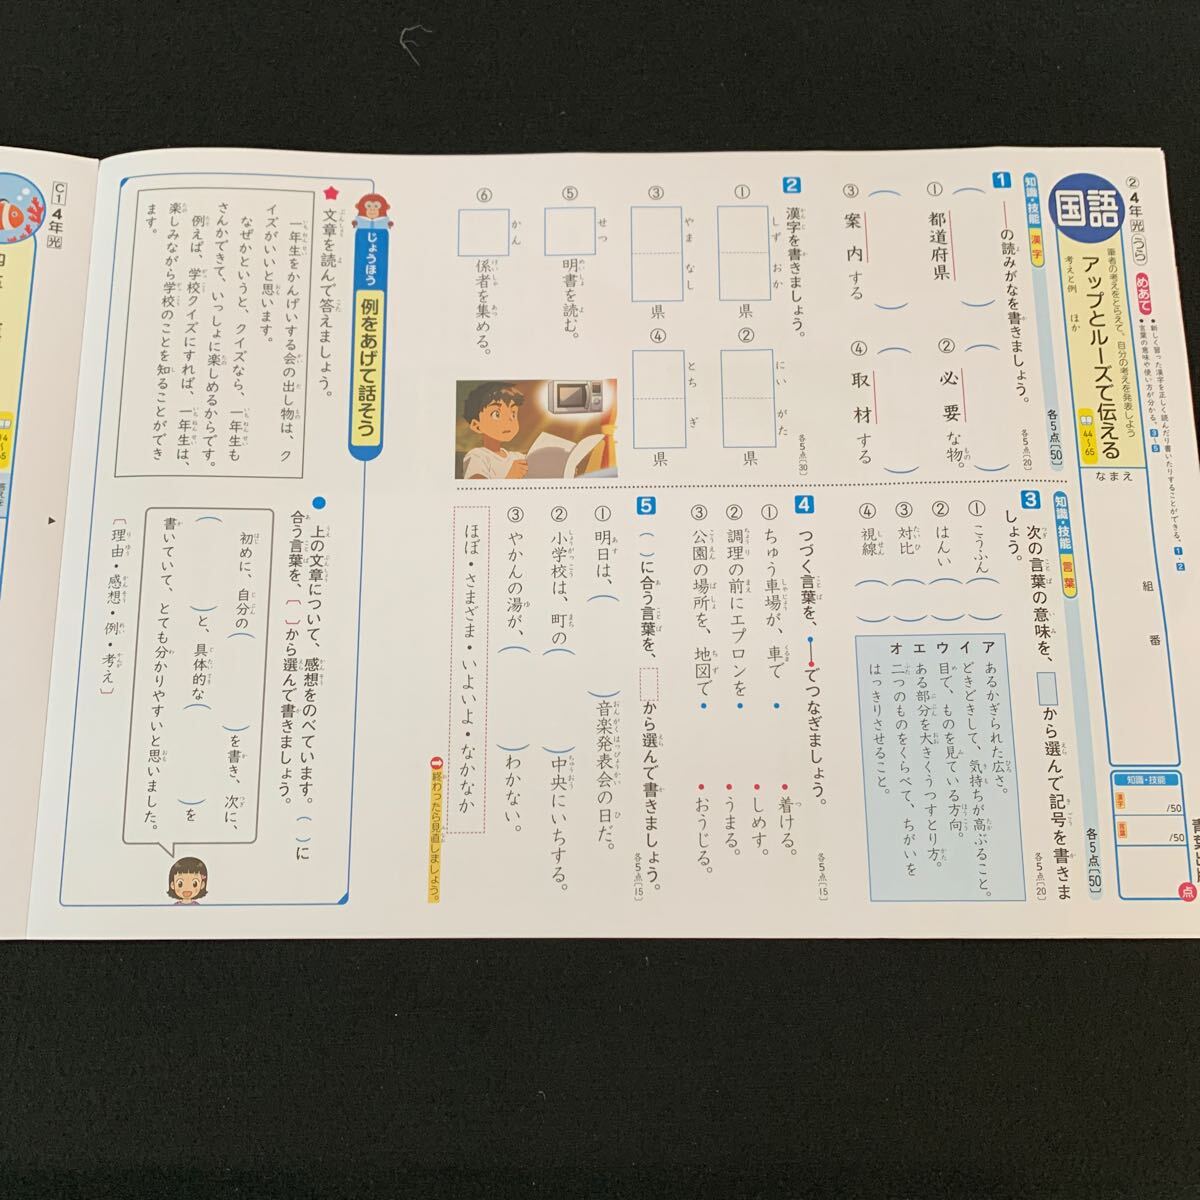 ②4年 光 うら
国語
筆者の考えをとらえて、自分の考えを発表しよう
アップとルーズで伝える
考えと例 ほか
44~65
めあて
●新しく習った漢字を正しく読んだり書いたりすることができる。1・2
●言葉の意味や使い方が分かる。3~5
なまえ
組
番
知識・技能
漢字
/50
言葉
/50
点
知識・技能 漢字
各5点[50]
1 ――の読みがなを書きましょう。
各5点[20]
① 都道府県
② 必要な物。
③ 案内する
④ 取材する
2 漢字を書きましょう。
各5点[30]
① しずおか 県
② にいがた 県
③ やまなし 県
④ とちぎ 県
⑤ せつ 明書を読む。
⑥ かん 係者を集める。
知識・技能 言葉
各5点[50]
3 次の言葉の意味を、 から選んで記号を書きま
しょう。
各5点[20]
① こうふん
② はんい
③ 対比
④ 視線
ア あるかぎられた広さ。
イ どきどきして、気持ちが高ぶること。
ウ 目で、ものを見ている方向。
エ ある部分を大きくうつすとり方。
オ 二つのものをくらべて、ちがいを
はっきりさせること。
4 つづく言葉を、――でつなぎましょう。
各5点[15]
① ちゅう車場が、車で ・ ・着ける。
② 調理の前にエプロンを ・ ・しめす。
③ 公園の場所を、地図で ・ ・うまる。
・おうじる。
5 ( )に合う言葉を、 から選んで書きましょう。
各5点[15]
① 明日は、( )音楽発表会の日だ。
② 小学校は、町の( )中央にいちする。
③ やかんの湯が、( )わかない。
ほぼ・さまざま・いよいよ・なかなか
➡終わったら見直しましょう。
じょうほう 例をあげて話そう
★ 文章を読んで答えましょう。
一年生をかんげいする会の出し物は、ク
イズがいいと思います。
なぜかというと、クイズなら、一年生も
さんかできて、いっしょに楽しめるからです。
例えば、学校クイズにすれば、一年生は、
楽しみながら学校のことを知ることができ
ます。
● 上の文章について、感想をのべています。( )に
合う言葉を、〔 〕から選んで書きましょう。
初めに、自分の( )
( )と、具体的な( )を書き、次に、
( )を
書いていて、とても分かりやすいと思いました。
〔理由・感想・例・考え〕
C1 4年 光